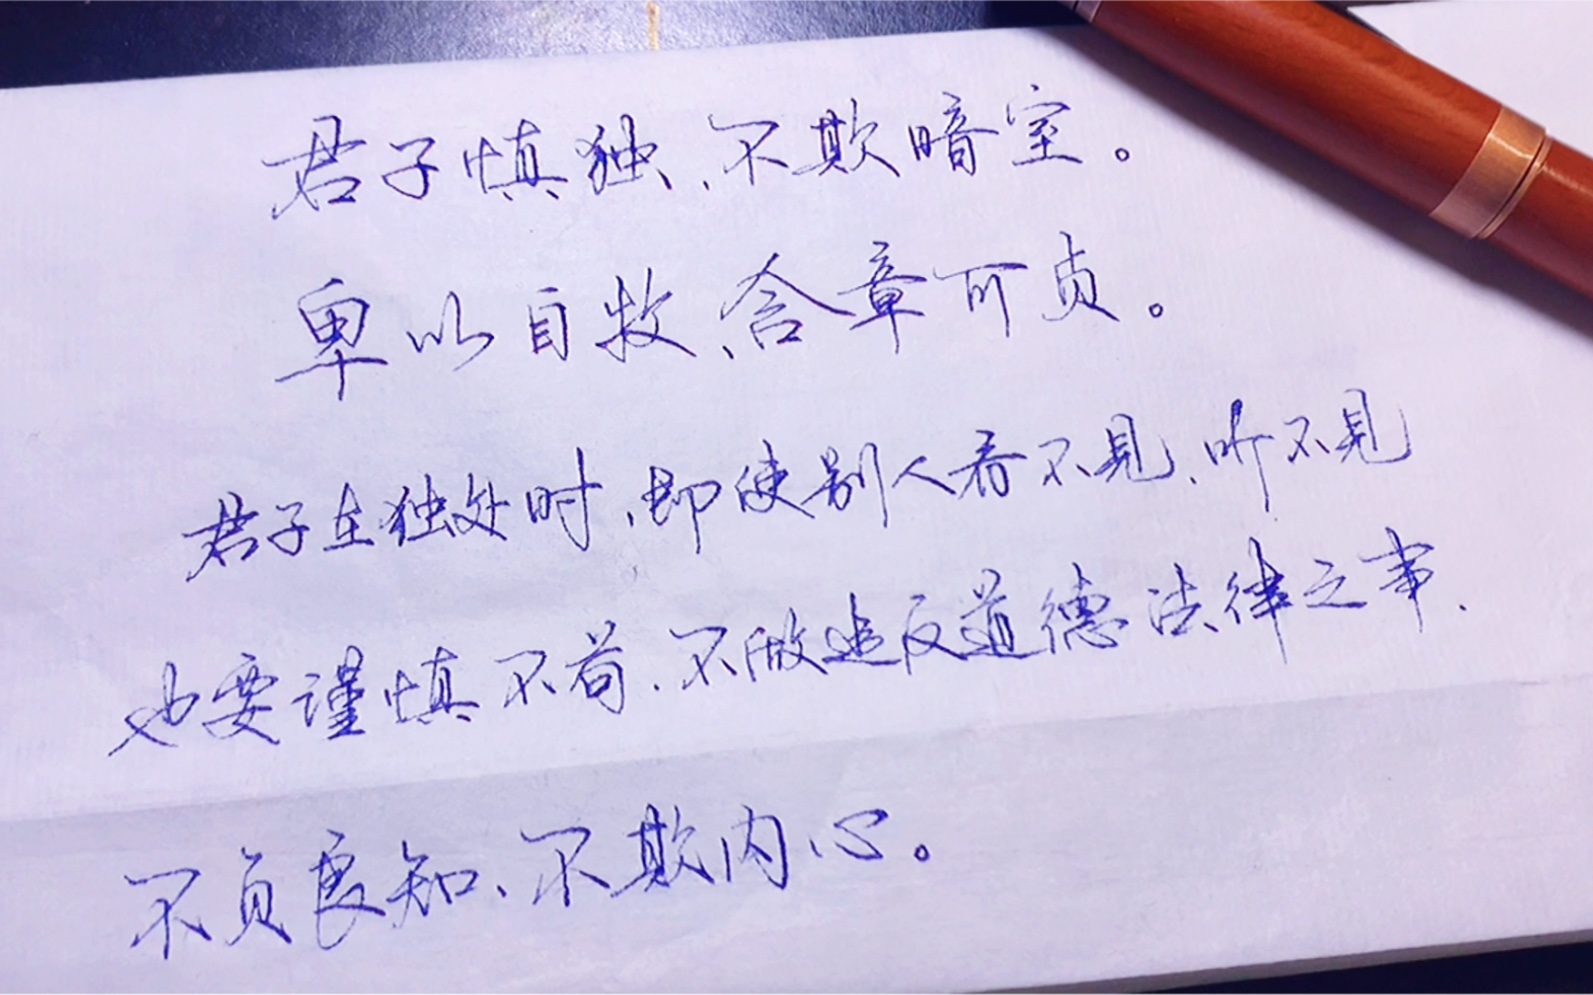 君子慎独、不欺暗室。
卑以自牧、含章可贞。
君子在独处时、即使别人看不见、听不见
也要谨慎不苟、不做违反道德法律之事、
不负良知、不欺内心。